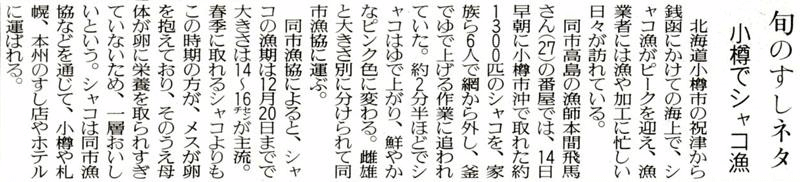 旬のすしネタ
小樽でシャコ漁
北海道小樽市の祝津から
銭函にかけての海上で、シ
ャコ漁がピークを迎え、漁
業者には漁や加工に忙しい
日々が訪れている。
同市高島の漁師本間飛馬
さん(27)の番屋では、14日
早朝に小樽市沖で取れた約
1300匹のシャコを、家
族ら6人で網から外し、釜
でゆで上げる作業に追われ
ていた。約2分半ほどでシ
ャコはゆで上がり、鮮やか
なピンク色に変わる。雌雄
と大きさ別に分けられて同
市漁協に運ぶ。
同市漁協によると、シャ
コの漁期は12月20日までで
大きさは14〜16㌢が主流。
春季に取れるシャコよりも
この時期の方が、メスが卵
を抱えており、そのうえ母
体が卵に栄養を取られすぎ
ていないため、一層おいし
いという。シャコは同市漁
協などを通じて、小樽や札
幌、本州のすし店やホテル
に運ばれる。